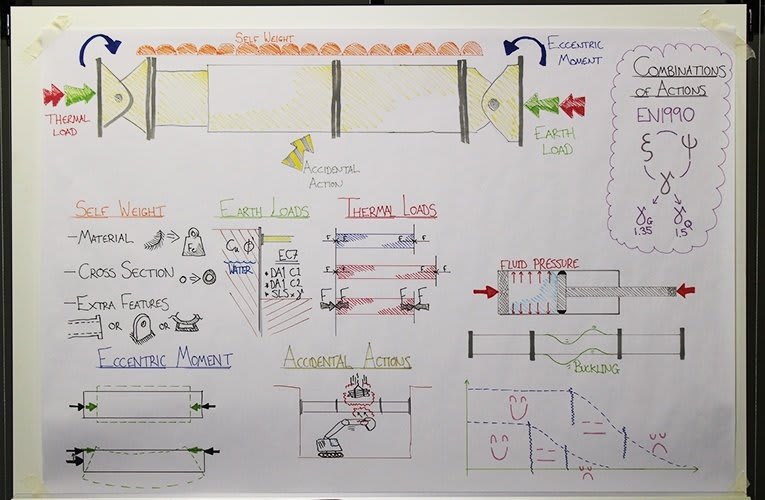 SELF WEIGHT
ECCENTRIC
MOMENT
THERMAL
LOAD
EARTH
LOAD
ACCIDENTAL
ACTION
COMBINATIONS
OF ACTIONS
EN1990
ξ ψ
γ
γG γQ
1.35 1.5
SELF WEIGHT
- MATERIAL
- CROSS SECTION
- EXTRA FEATURES
OR OR
EARTH LOADS
WATER
EC7
DA1 C1
DA1 C2
SLS x γ
THERMAL LOADS
F F
F F
F F
FLUID PRESSURE
BUCKLING
ECCENTRIC MOMENT
ACCIDENTAL ACTIONS